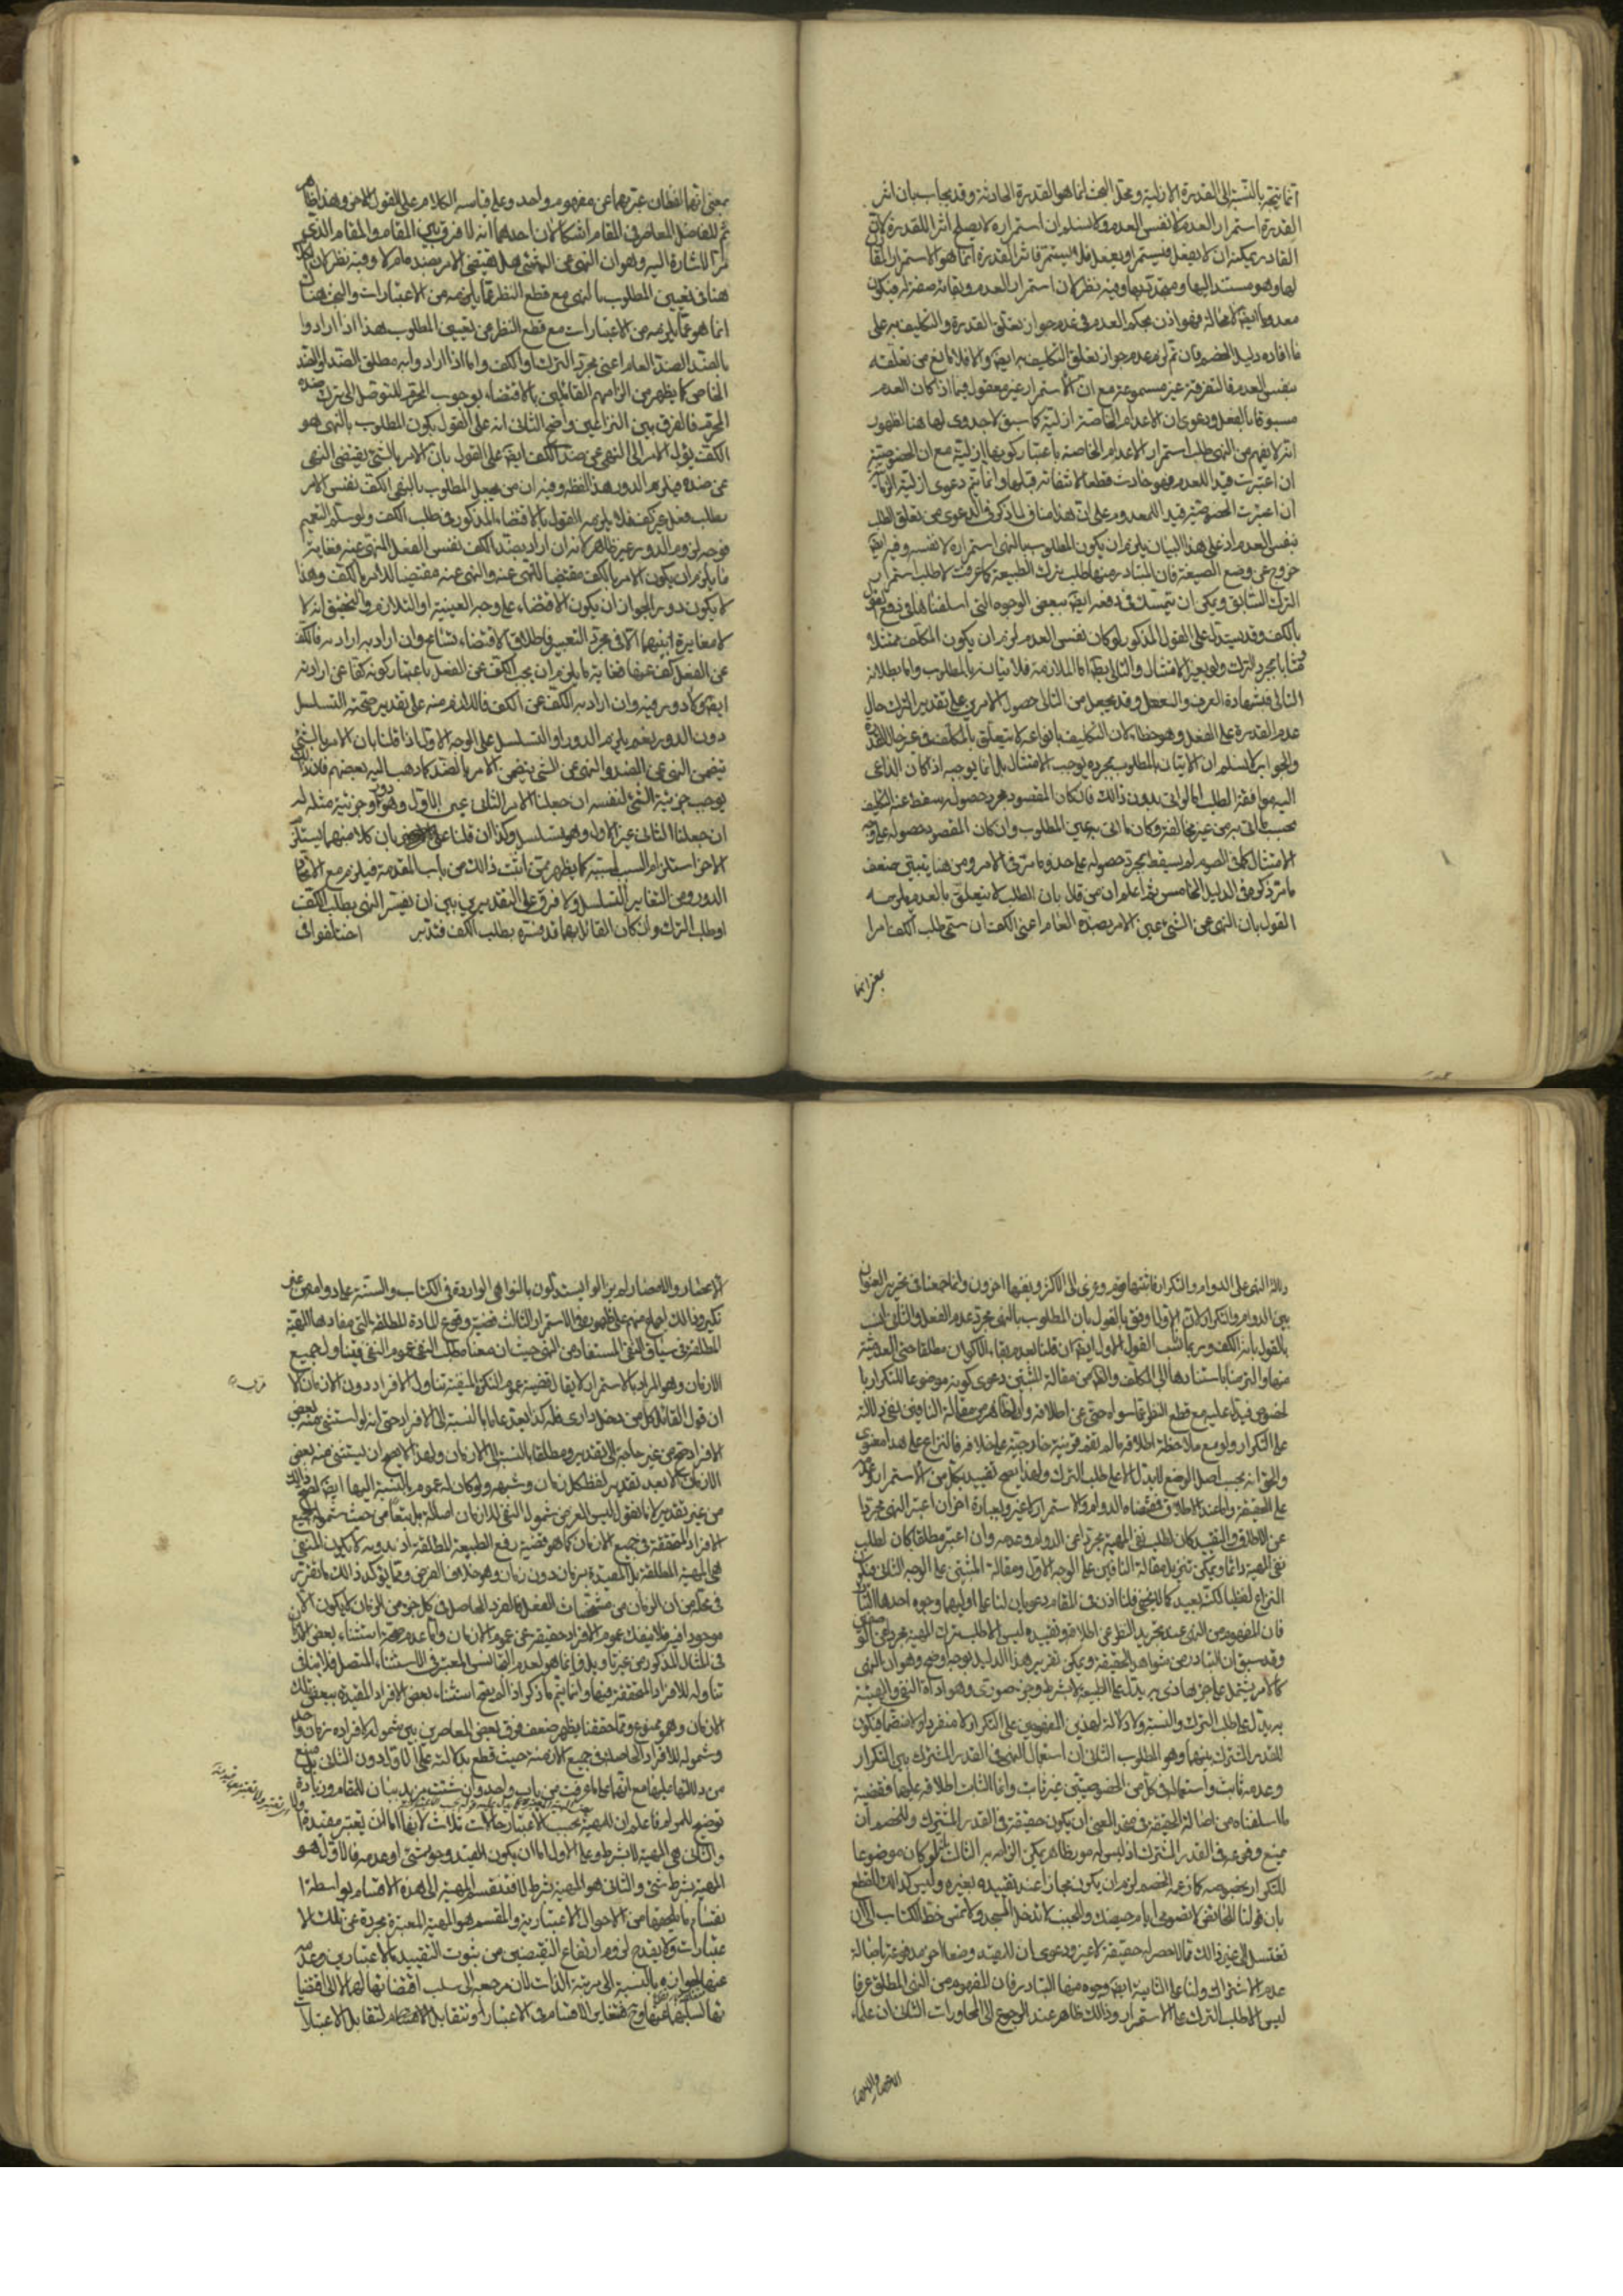 انما يتجه بالنسبة الى القدرة الازلية ومحل البحث انما هو القدرة الحادثة وقد يجاب بان اثر
القدرة استمرار العدم لا نفس العدم ولا نسلم ان استمراره لا يصلح اثرا للقدرة لان
القادر يمكنه ان لا يفعل فيستمر او يفعل فلا يستمر فاثر القدرة انما هو الاستمرار
لها وهو مستند اليها وفيه نظر لان استمرار العدم وبقائه صفة له فيكون
معدوما ايضا لا محالة فهو اذن بحكم العدم في عدم جواز تعلق القدرة والتكليف به على
ما افاده دليل الخصم فان تم لزم عدم جواز تعلق التكليف به ايضا والا فلا مانع من تعلقه
بنفس العدم فالتفرقة غير مسموعة مع ان الاستمرار غير معقول فيما اذا كان العدم
مسبوقا بالفعل ودعوى ان الاعدام الخاصة ازلية كما سبق لا جدوى لها هنا لظهور
انه لا يفهم من النهي طلب استمرار الاعدام الخاصة باعتبار كونها ازلية مع ان الخصوصية
ان اعتبرت قيدا للعدم فهو حادث قطعا لانتفائه قبلها وانما يتم دعوى ازلية
ان اعتبرت الخصوصية قيد المعدوم على ان هذا مناف لما ذكر في الدعوى من تعلق الطلب
بنفس العدم اذ على هذا البيان يلزم ان يكون المطلوب بالنهي استمراره لا نفسه وفيه ايضا
خروج عن وضع الصيغة فان المتبادر منها طلب ترك الطبيعة كما عرفت لا طلب استمرار
الترك السابق ويمكن ان يتمسك في دفعه ايضا ببعض الوجوه التي اسلفناها في دفع القول
بالكف وقد يستدل على القول المذكور لو كان نفس العدم لزم ان يكون المكلف ممتثلا
مثابا بمجرد الترك ولو بغير الامتثال والتالي بط اما الملازمة فلاتيانه بالمطلوب واما بطلان
التالي فبشهادة العرف والعقل وقد يجعل من التالي حصول الامرين على تقدير الترك حال
عدم القدرة على الفعل وهو خطأ لان التكليف بانواعه لا يتعلق بالمكلف في غير حال القدرة
والجواب لا نسلم ان الاتيان بالمطلوب بمجرده يوجب الامتثال بل انما يوجبه اذا كان الداعي
اليه موافقة الطلب اما لو اتى بدون ذلك فان كان المقصود مجرد حصوله سقط عنه التكليف
بحسب ما اتى به من غير مخالفة وكان ما اتى به عين المطلوب وان كان المقصود حصوله على وجه
الامتثال كما في الصوم لم يسقط بمجرد حصوله على حذو ما مر في الامر ومن هنا يتبين ضعف
ما مر ذكره في الدليل الخامس ثم اعلم ان من قال بان الطلب لا يتعلق بالعدم يلزمه
القول بان النهي عن الشيء عين الامر بضده العام اعني الكف ان سمى طلب الكف امرا
بمعنى انهما
بمعنى انهما لفظان عبر بهما عن مفهوم واحد وعلى قياسه الكلام على القول الاخر وهذا ظاهر
ثم للفاضل المعاصر في المقام اشكالان احدهما انه لا فرق بين المقام والمقام الذي
مر الاشارة اليه وهو ان النهي عن الشيء هل يقتضي الامر بضده ام لا وفيه نظر لان
هنا في تعيين المطلوب بالنهي مع قطع النظر عما يلزمه من الاعتبارات والبحث هناك
انما هو عما يلزمه من الاعتبارات مع قطع النظر من تعيين المطلوب هذا اذا ارادوا
بالضد الضد العام اعني مجرد الترك او الكف واما اذا ارادوا به مطلق الضد او الضد
الخاص كما يظهر من الزامهم القائلين بالاقتضاء بوجوب المحرم للتوصل الى ترك ضده
المحرم فالفرق بين النزاعين واضح الثاني انه على القول بكون المطلوب بالنهي هو
الكف يؤل الامر الى النهي عن ضد الكف ايضا على القول بان الامر بالشيء يقتضي النهي
عن ضده فيلزم الدور هذا لفظه وفيه ان من يجعل المطلوب بالنهي الكف يفسر الامر
بطلب فعل غير كف فلا يلزمه القول بالاقتضاء المذكور في طلب الكف ولو سلم التعميم
فوجه لزوم الدور غير ظاهر لانه ان اراد بضد الكف نفس الفعل المنهي عنه فغاية
ما يلزم ان يكون الامر بالكف مقتضيا للنهي عنه والنهي عنه مقتضيا للامر بالكف وهذا
لا يكون دورا لجواز ان يكون الاقتضاء على وجه العينية او التلازم والتحقيق انه لا
لا مغايرة بينهما الا في مجرد التعبير فاطلاق الاقتضاء تسامح وان اراد به ارادة فالكف
عن الفعل كف عرضا فغاية ما يلزم ان يجب الكف عن الفعل باعتبار كونه كفا عن ارادته
ايضا ولا دور فيه وان اراد به الكف عن الكف فاللازم منه على تقدير صحته التسلسل
دون الدور نعم يلزم الدور او التسلسل على الوجه الاول اذا قلنا بان الامر بالشيء
يتضمن النهي عن الضد والنهي عن الشيء يتضمن الامر بالضد كما ذهب اليه بعضهم فان ذلك
يوجب جزئية الشيء لنفسه ان جعلنا الامر الثاني عين الاول وهو دور او جزئية مثله له
ان جعلنا الثاني غير الاول وهو تسلسل وكذا ان قلنا بان كلا منهما يستلزم
الاخر استلزام السبب لمسببه كما يظهر ممن اثبت ذلك من باب المقدمة فيلزم مع الاتحاد
الدور ومن التغاير التسلسل ولا فرق على التقديرين بين ان يفسر النهي بطلب الكف
او طلب الترك وان كان القائل بهما قد فسره بطلب الكف فتدبر اختلفوا في
دلالة النهي على الدوام والتكرار فاثبتها قوم وعزي الى الاكثر ونفيها اخرون وانما جمعنا في تحرير العنوان
بين الدوام والتكرار لان الاول اوفق بالقول بان المطلوب بالنهي مجرد عدم الفعل والثاني انسب
بالقول بانه الكف وربما ناسب القول الاول ايضا ان قلنا بعدم بقاء الاكوان مطلقا حتى العدمية
منها والتزمنا باستنادها الى المكلف والظاهر من مقالة المثبتين دعوى كونه موضوعا للتكرار
على التكرار ولو مع ملاحظة اطلاقه ما لم تقم قرينة خارجية على خلافه فالنزاع على هذا معنوي
والحق انه بحسب اصل الوضع لا يدل الا على طلب الترك ولهذا يصح تقييده بكل من الاستمرار وعدمه
على الحقيقة واما عند الاطلاق فمقتضاه الدوام والاستمرار لا غير وبعبارة اخرى ان اعتبر النهي مجردا
عن الاطلاق والتقييد كان لطلب نفي المهية مجردا عن الدوام وعدمه وان اعتبر مطلقا كان لطلب
نفي المهية دائما ويمكن تنزيل مقالة النافين على الوجه الاول ومقالة المثبتين على الوجه الثاني فيكون
النزاع لفظيا لكنه بعيد كما لا يخفى فلنا اذن في المقام دعويان لنا على اوليهما وجوه احدها التبادر
فان المفهوم من النهي عند تجريد النظر عن اطلاقه وتقييده ليس الا طلب ترك المهية مجردا عن الوصفين
وقد سبق ان التبادر من شواهد الحقيقة ويمكن تقرير هذا الدليل بوجه اوضح وهو ان النهي
كالامر يشتمل على جزء مادي يدل على الطبيعة لا بشرط وجزء صوري وهو اداة النهي والهيئة
به يدل على طلب الترك والنسبة ولا دلالة لهذين المفهومين على التكرار لا منفردا ولا منضما فيكون
للقدر المشترك بينهما وهو المطلوب الثاني ان استعمال النهي في القدر المشترك بين التكرار
وعدمه ثابت واستعماله في كل من الخصوصيتين غير ثابت وانما الثابت اطلاقه عليهما فقضية
ما اسلفناه من اصالة الحقيقة في متحد المعنى ان يكون حقيقة في القدر المشترك وللخصم ان
يمنع وقوعه في القدر المشترك اذ ليس له مورد ظاهر يمكن الزامه به الثالث لو كان موضوعا
للتكرار بخصوصه كما زعمه الخصم لزم ان يكون مجازا عند تقييده بغيره وليس كذلك للقطع
بان قولنا للحائض لا تصومي ايام حيضك وللجنب لا تدخل المسجد ولا تمس خط الكتاب الى ان
تغتسل الى غير ذلك مما لا حصر له حقيقة لا غير ودعوى ان للمقيد وضعا اخر مدفوعة باصالة
عدم الاشتراك ولنا على الثانية ايضا وجوه منها التبادر فان المفهوم من النهي المطلق عرفا
ليس الا طلب الترك على الاستمرار وذلك ظاهر عند الرجوع الى المحاورات الثاني ان علماء
الاعصار والامصار
الاعصار والامصار لم يزالوا يستدلون بالنواهي الواردة في الكتاب والسنة على دوام من غير
نكير وذلك اجماع منهم على ظهوره في الاستمرار الثالث قضية وقوع المادة المطلقة التي مفادها المهية
المطلقة في سياق النفي المستفاد من النهي حيث ان معناه طلب النفي عموم النفي فيتناول جميع
الازمان وهو المراد بالاستمرار لا يقال قضية عموم النكرة المنفية تناول الافراد دون الازمان الا
ان قول القائل كل من دخل داري فله كذا يعد عاما بالنسبة الى الافراد حتى انه لو استثنى منه بعض
الافراد صح من غير حاجة الى تقدير ومطلقا بالنسبة الى الازمان ولهذا لا يصح ان يستثنى منه بعض
الازمان الا بعد تقدير لفظ كل زمان وشبهه ولو كان له عموم بالنسبة اليها ايضا لصح ذلك
من غير تقدير لانا نقول ليس الغرض شمول النفي للازمان اصالة بل تبعا من حيث شموله لجميع
الافراد المتحققة في جميع الازمان كما هو قضية رفع الطبيعة المطلقة اذ بدونه لا يكون المنفي
هي المهية المطلقة بل المقيدة بزمان دون زمان وهو خلاف الفرض ومما يؤكد ذلك ما تقرر
في محله من ان الزمان من مشخصات الفعل فالفرد الحاصل في كل جزء من الزمان لا يكون
موجودا فيه فلا ينفك عموم الافراد حقيقة عن عموم الازمان واما عدم صحة استثناء بعض الازمان
في المثال المذكور من غير تاويل فانما هو لعدم التجانس المعتبر في الاستثناء المتصل فلا ينافي
تناوله للافراد المتحققة فيها وانما يتم ما ذكر اذا لم يصح استثناء بعض الافراد المقيدة ببعض تلك
الازمان وهو ممنوع ومما حققنا يظهر ضعف فرق بعض المعاصرين بين شموله لافراده بزمان واحد
وشموله للافراد الحاصلة في جميع الازمنة حيث قطع بدلالته على الاول دون الثاني بل منع
من دلالتها عليها مع انهما على ما عرفت من باب واحد وان شئت مزيد بيان للمقام وزيادة
توضيح للمرام فاعلم ان للمهية بحسب الاعتبار حالات ثلاث لانها اما ان تعتبر مقيدة او لا
والثاني هي المهية لا بشرط وعلى الاول اما ان يكون القيد وجود شيء او عدمه فالاول هو
المهية بشرط شيء والثاني هو المهية بشرط لا فتنقسم المهية الى هذه الاقسام بواسطة
انقسام ما يلحقها من الاحوال الاعتبارية والمقسم هو المهية المعتبرة مجردة عن تلك الا
عتبارات ولا يقدح لزوم ارتفاع النقيضين من ثبوت التقييد بالاعتبارين وعدمه
عنها لجوازه بالنسبة الى مرتبة الذات لان مرجعه الى سلب اقتضائها لهما لا الى اقتضا
ئها لسلبهما عنها وح فتغاير الاقسام في الاعتبار وتتقابل الاقسام لتقابل الاعتبارات